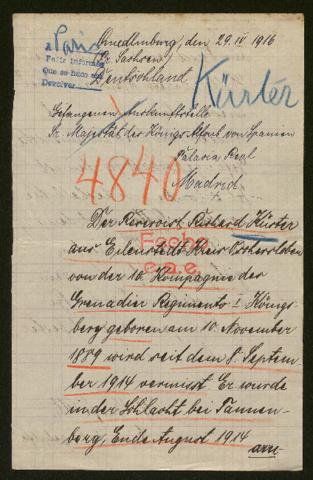 Quedlinburg, den 29. IV 1916
Pr. Sachsen
Deutschland
a Paris
Pedir informes
Que se hace
Devolver
Kürster
Gefangenen Auskunftstelle
Sr. Majestät des Königs Alfons von Spanien
Palacio Real
Madrid
4840
Der Reservist Richard Kürster
aus Eilenstedt Kreis Oschersleben
Fecho
c.a.e.
von der 10. Kompagnie des
Grenadier Regiments I Königs-
berg geboren am 10. November
1889 wird seit dem 8. Septem-
ber 1914 vermisst. Er wurde
in der Schlacht bei Tannen-
berg, Ende August 1914